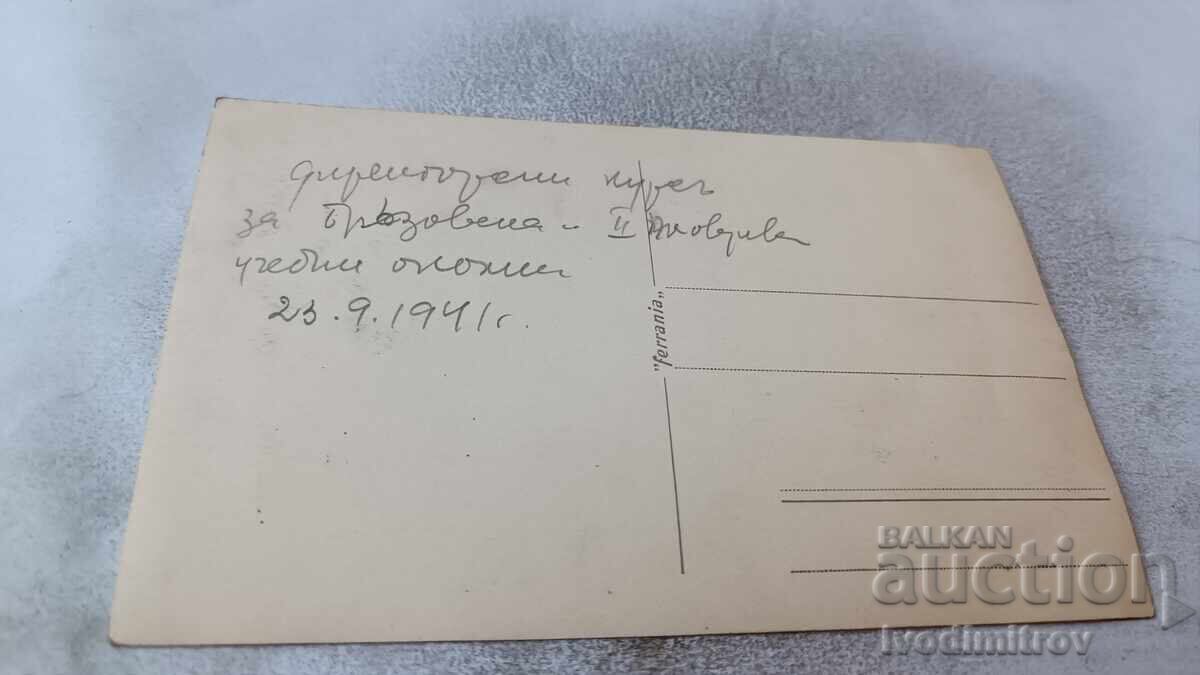 Директорски курс
за Брѣзовска и II Пловдивска
учебни околии
23.9.1941 г.
"ferrania"
BALKAN
auction
Ivodimitrov